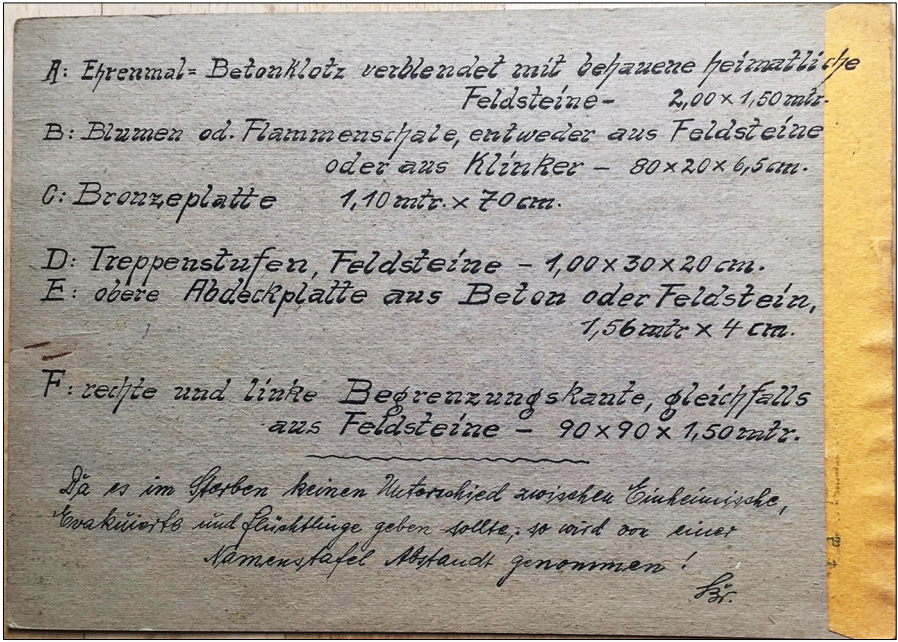 A: Ehrenmal= Betonklotz verblendet mit behauene heimatliche
Feldsteine- 2,00 x 1,50 mtr.
B: Blumen od. Flammenschale, entweder aus Feldsteine
oder aus Klinker – 80 x 20 x 6,5 cm.
C: Bronzeplatte 1,10 mtr. x 70 cm.
D: Treppenstufen, Feldsteine – 1,00 x 30 x 20 cm.
E: obere Abdeckplatte aus Beton oder Feldstein,
1,56 mtr x 4 cm.
F: rechte und linke Begrenzungskante, gleichfalls
aus Feldsteine – 90 x 90 x 1,50 mtr.
Da es im Sterben keinen Unterschied zwischen Einheimische,
Evakuierte und Flüchtlinge geben sollte, so wird von einer
Namenstafel Abstandt genommen!